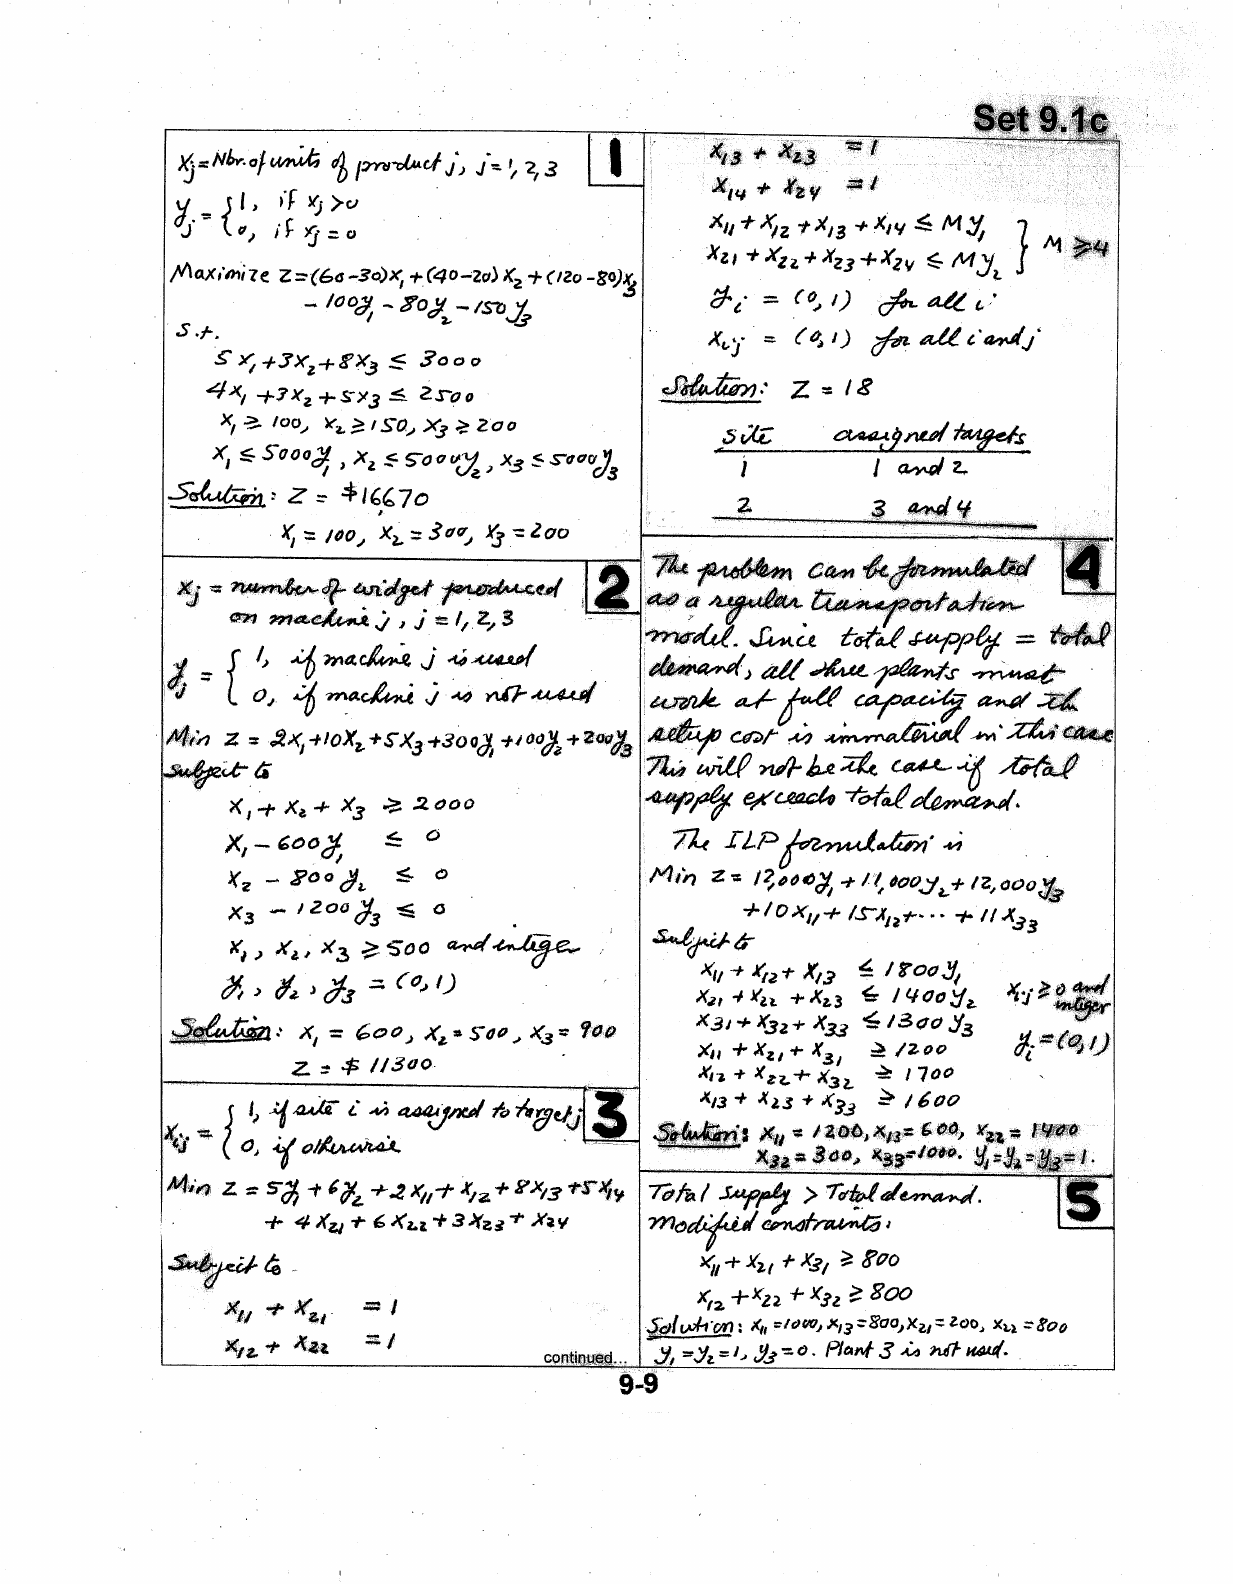 Set 9.1c
1
xj = Nbr. of units of product j, j = 1, 2, 3
yj = { 1, if xj > 0
0, if xj = 0
Maximize Z=(60-30)x1 + (40-20)x2 + (120-80)x3
- 100y1 - 80y2 - 150y3
s.t.
5x1 + 3x2 + 8x3 ≤ 3000
4x1 + 3x2 + 5x3 ≤ 2500
x1 ≥ 100, x2 ≥ 150, x3 ≥ 200
x1 ≤ 5000y1, x2 ≤ 5000y2, x3 ≤ 5000y3
Solution: Z = $16670
x1 = 100, x2 = 300, x3 = 200
2
xj = number of widget produced
on machine j, j = 1, 2, 3
yj = { 1, if machine j is used
0, if machine j is not used
Min z = 2x1 + 10x2 + 5x3 + 300y1 + 100y2 + 200y3
Subject to
x1 + x2 + x3 ≥ 2000
x1 - 600y1 ≤ 0
x2 - 800y2 ≤ 0
x3 - 1200y3 ≤ 0
x1, x2, x3 ≥ 500 and integer
y1, y2, y3 = (0,1)
Solution: x1 = 600, x2 = 500, x3 = 900
Z = $11300
3
xij = { 1, if site i is assigned to target j
0, if otherwise
Min Z = 5y1 + 6y2 + 2x11 + x12 + 8x13 + 5x14
+ 4x21 + 6x22 + 3x23 + x24
Subject to
x11 + x21 = 1
x12 + x22 = 1
continued...
x13 + x23 = 1
x14 + x24 = 1
x11 + x12 + x13 + x14 ≤ My1
x21 + x22 + x23 + x24 ≤ My2 } M ≥ 4
yi = (0,1) for all i
xij = (0,1) for all i and j
Solution: Z = 18
site assigned targets
1 1 and 2
2 3 and 4
4
The problem can be formulated
as a regular transportation
model. Since total supply = total
demand, all three plants must
work at full capacity and the
setup cost is immaterial in this case
This will not be the case if total
supply exceeds total demand.
The ILP formulation is
Min z = 12,000y1 + 11,000y2 + 12,000y3
+10x11 + 15x12 + ··· + 11x33
Subject to
x11 + x12 + x13 ≤ 1800y1
x21 + x22 + x23 ≤ 1400y2 xij ≥ 0 and integer
x31 + x32 + x33 ≤ 1300y3
x11 + x21 + x31 ≥ 1200 yi = (0,1)
x12 + x22 + x32 ≥ 1700
x13 + x23 + x33 ≥ 1600
Solution: x11 = 1200, x13 = 600, x22 = 1400
x32 = 300, x33 = 1000. y1 = y2 = y3 = 1.
5
Total supply > Total demand.
Modified constraints:
x11 + x21 + x31 ≥ 800
x12 + x22 + x32 ≥ 800
Solution: x11 = 1000, x13 = 800, x21 = 200, x22 = 800
y1 = y2 = 1, y3 = 0. Plant 3 is not used.
9-9